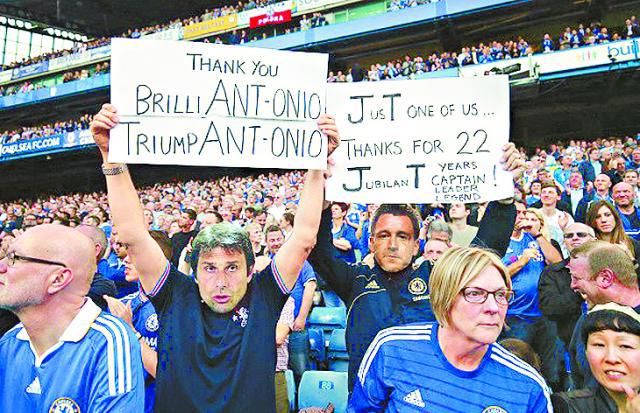 POLSKA
CHELSEAFC.COM
THANK YOU
BRILLIANT-ONIO
TRIUMPANT-ONIO
JUST ONE OF US...
THANKS FOR 22
JUBILANT YEARS CAPTAIN LEADER LEGEND !